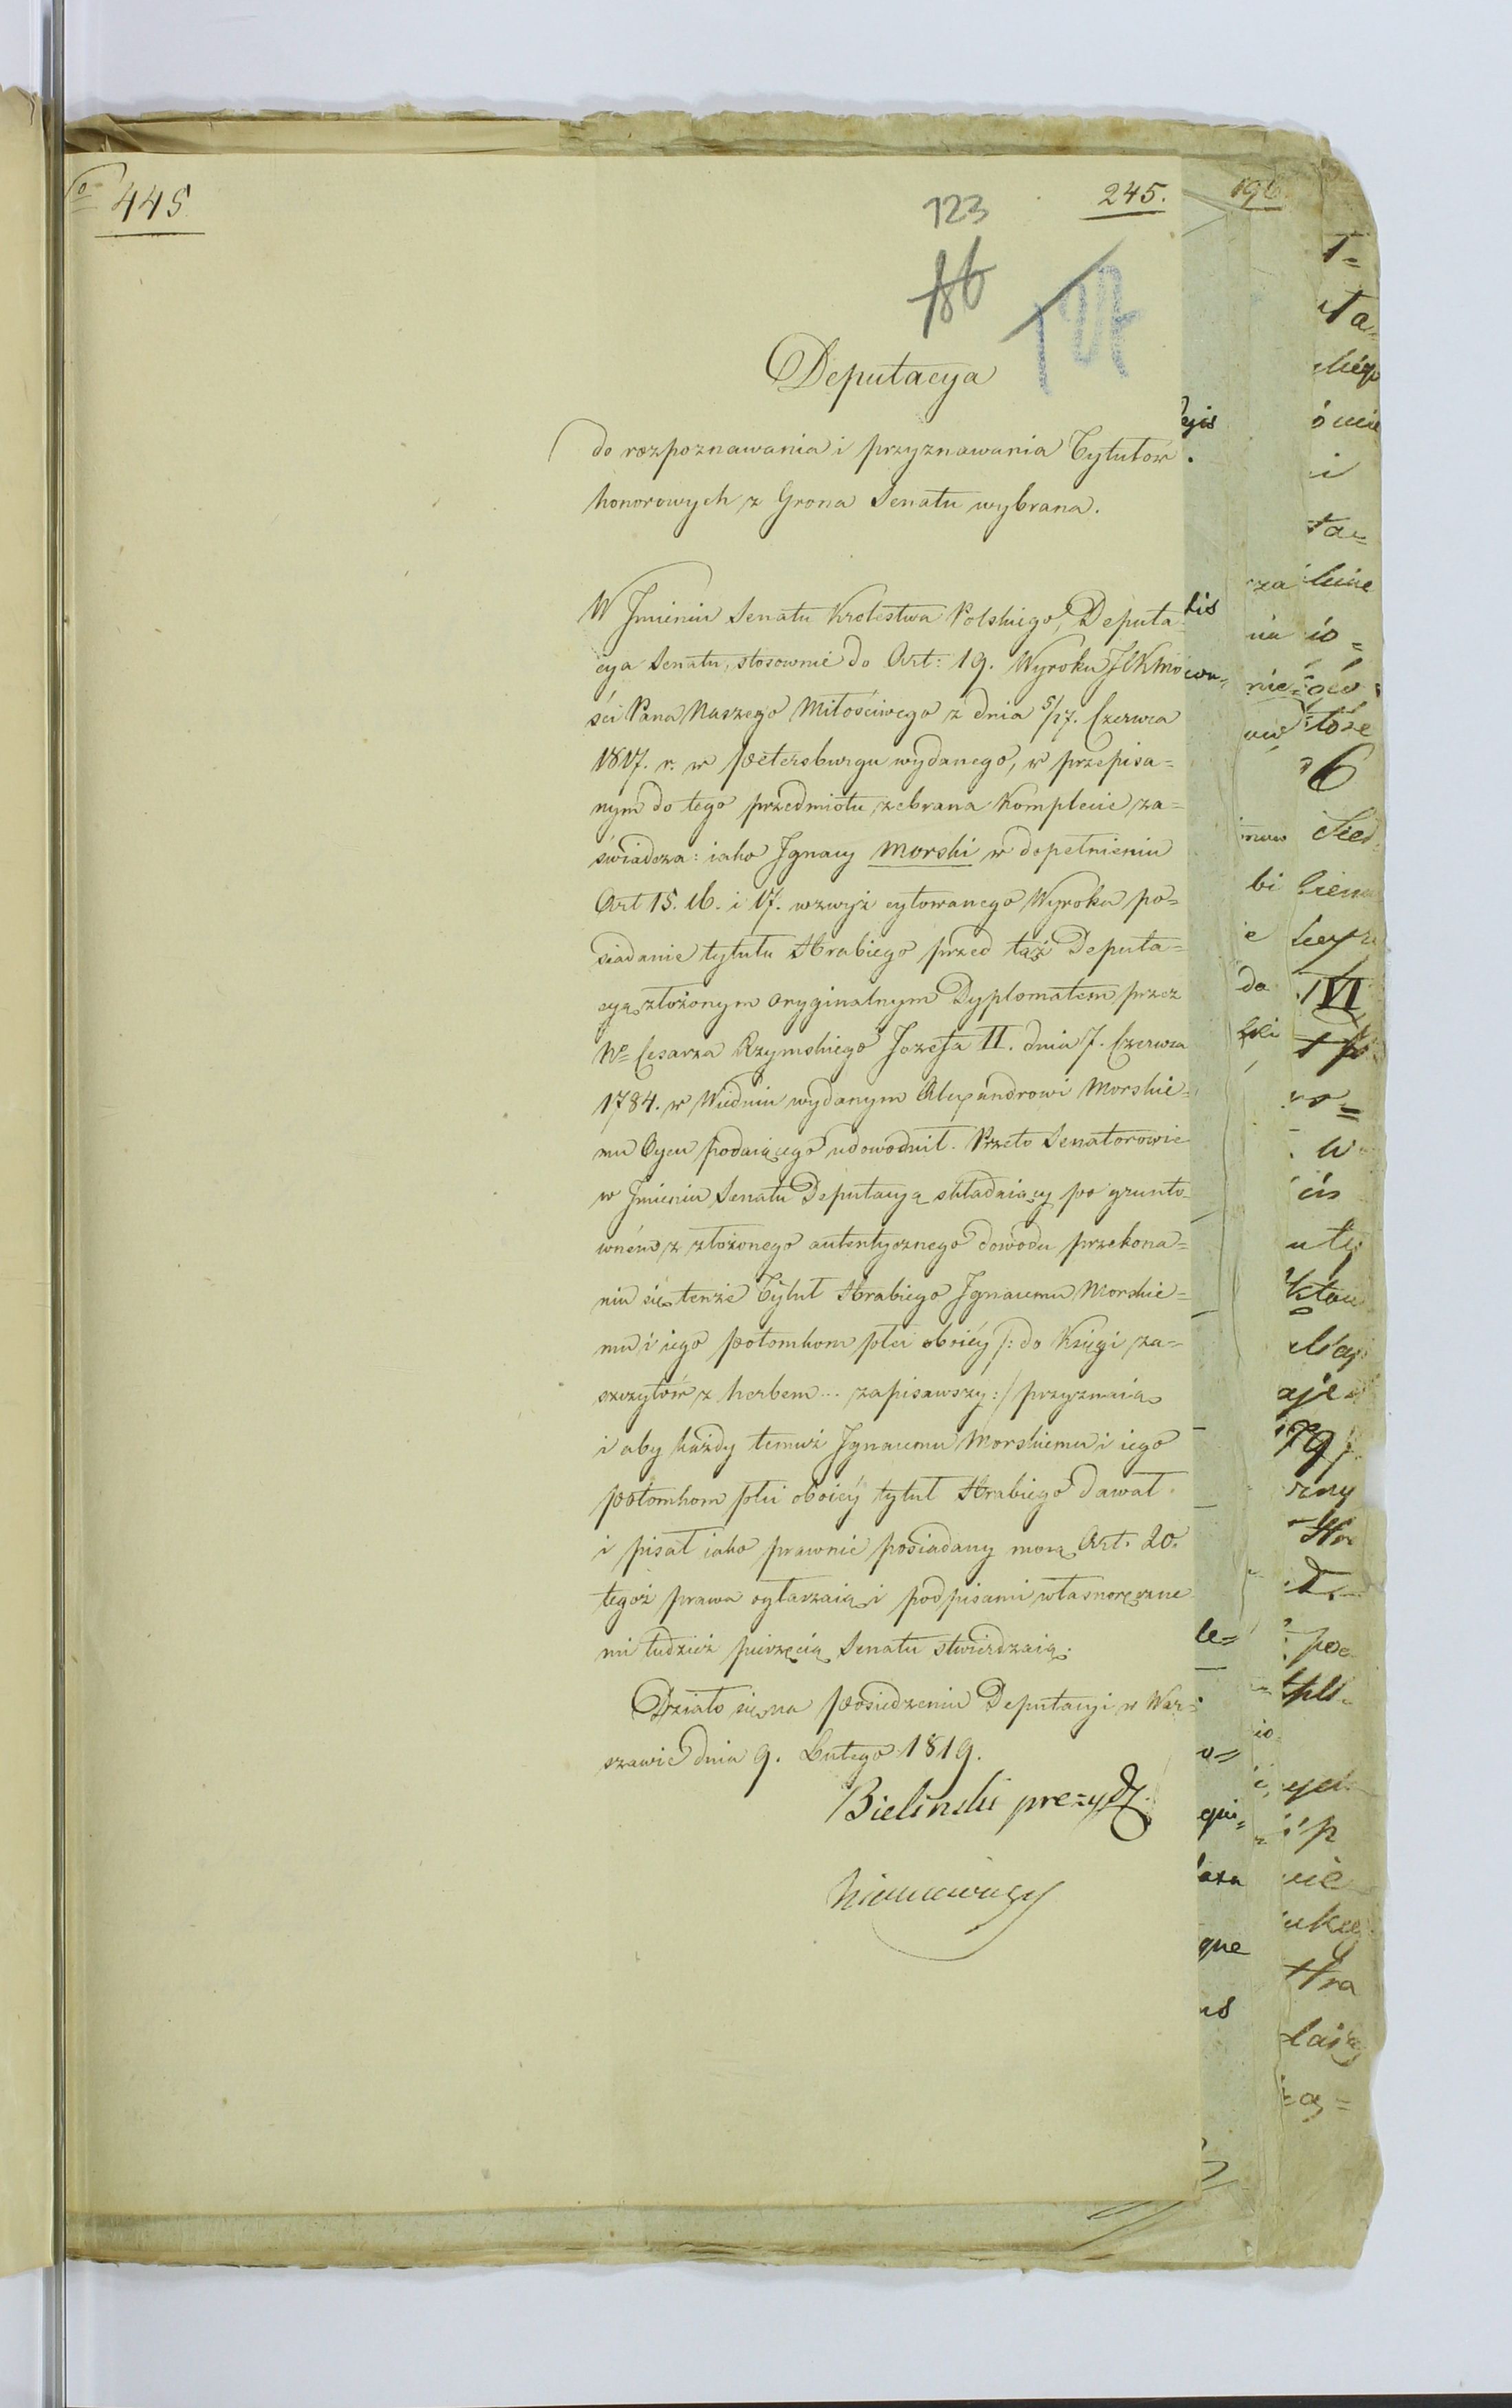 445
123
245.
196
186
127
Deputacya
do rozpoznawania i przyznawania Tytułów
honorowych z Grona Senatu wybrana.
W Jmieniu Senatu Krolestwa Polskiego, Deputa=
cya Senatu, stosownie do Art: 19. Wyroku JCKMo
ści Pana Naszego Miłościwego z dnia 5/17. Czerwca
1817. r. w Petersburgu wydanego, w przepisa=
nym do tego przedmiotu zebrana Komplecie za=
świadcza: iako Jgnacy Morski w dopełnieniu
Art 15. 16. i 17. wzwyż cytowanego Wyroku po=
siadanie tytułu Hrabiego przed tąż Deputa=
cyą złożonym oryginalnym Dyplomatem przez
No Cesarza Rzymskiego Jozefa II. dnia 7. Czerwca
1784. w Wiedniu wydanym Alexandrowi Morskie=
mu Oycu podaiącego udowodnił. Przeto Senatorowie
w Jmieniu Senatu Deputacyą składaiący po grunto
wném z złożonego autentycznego dowodu przekona=
niu się tenże Tytuł Hrabiego Jgnacemu Morskie=
mu i iego potomkom płci oboiéy /: do Księgi za=
szczytów z herbem ... zapisawszy :/ przyznaią
i aby każdy temuż Jgnacemu Morskiemu i iego
potomkom płci oboiéy tytuł Hrabiego dawał
i pisał iako prawnie posiadany mocą Art. 20.
tegoż prawa ogłaszaią i podpisami własnoręczne
mi tudzież pieczęcią Senatu stwierdzaią.
Działo się na posiedzeniu Deputacyi w War=
szawie dnia 9. Lutego 1819.
Bielinski prezyd
Niemcewicz